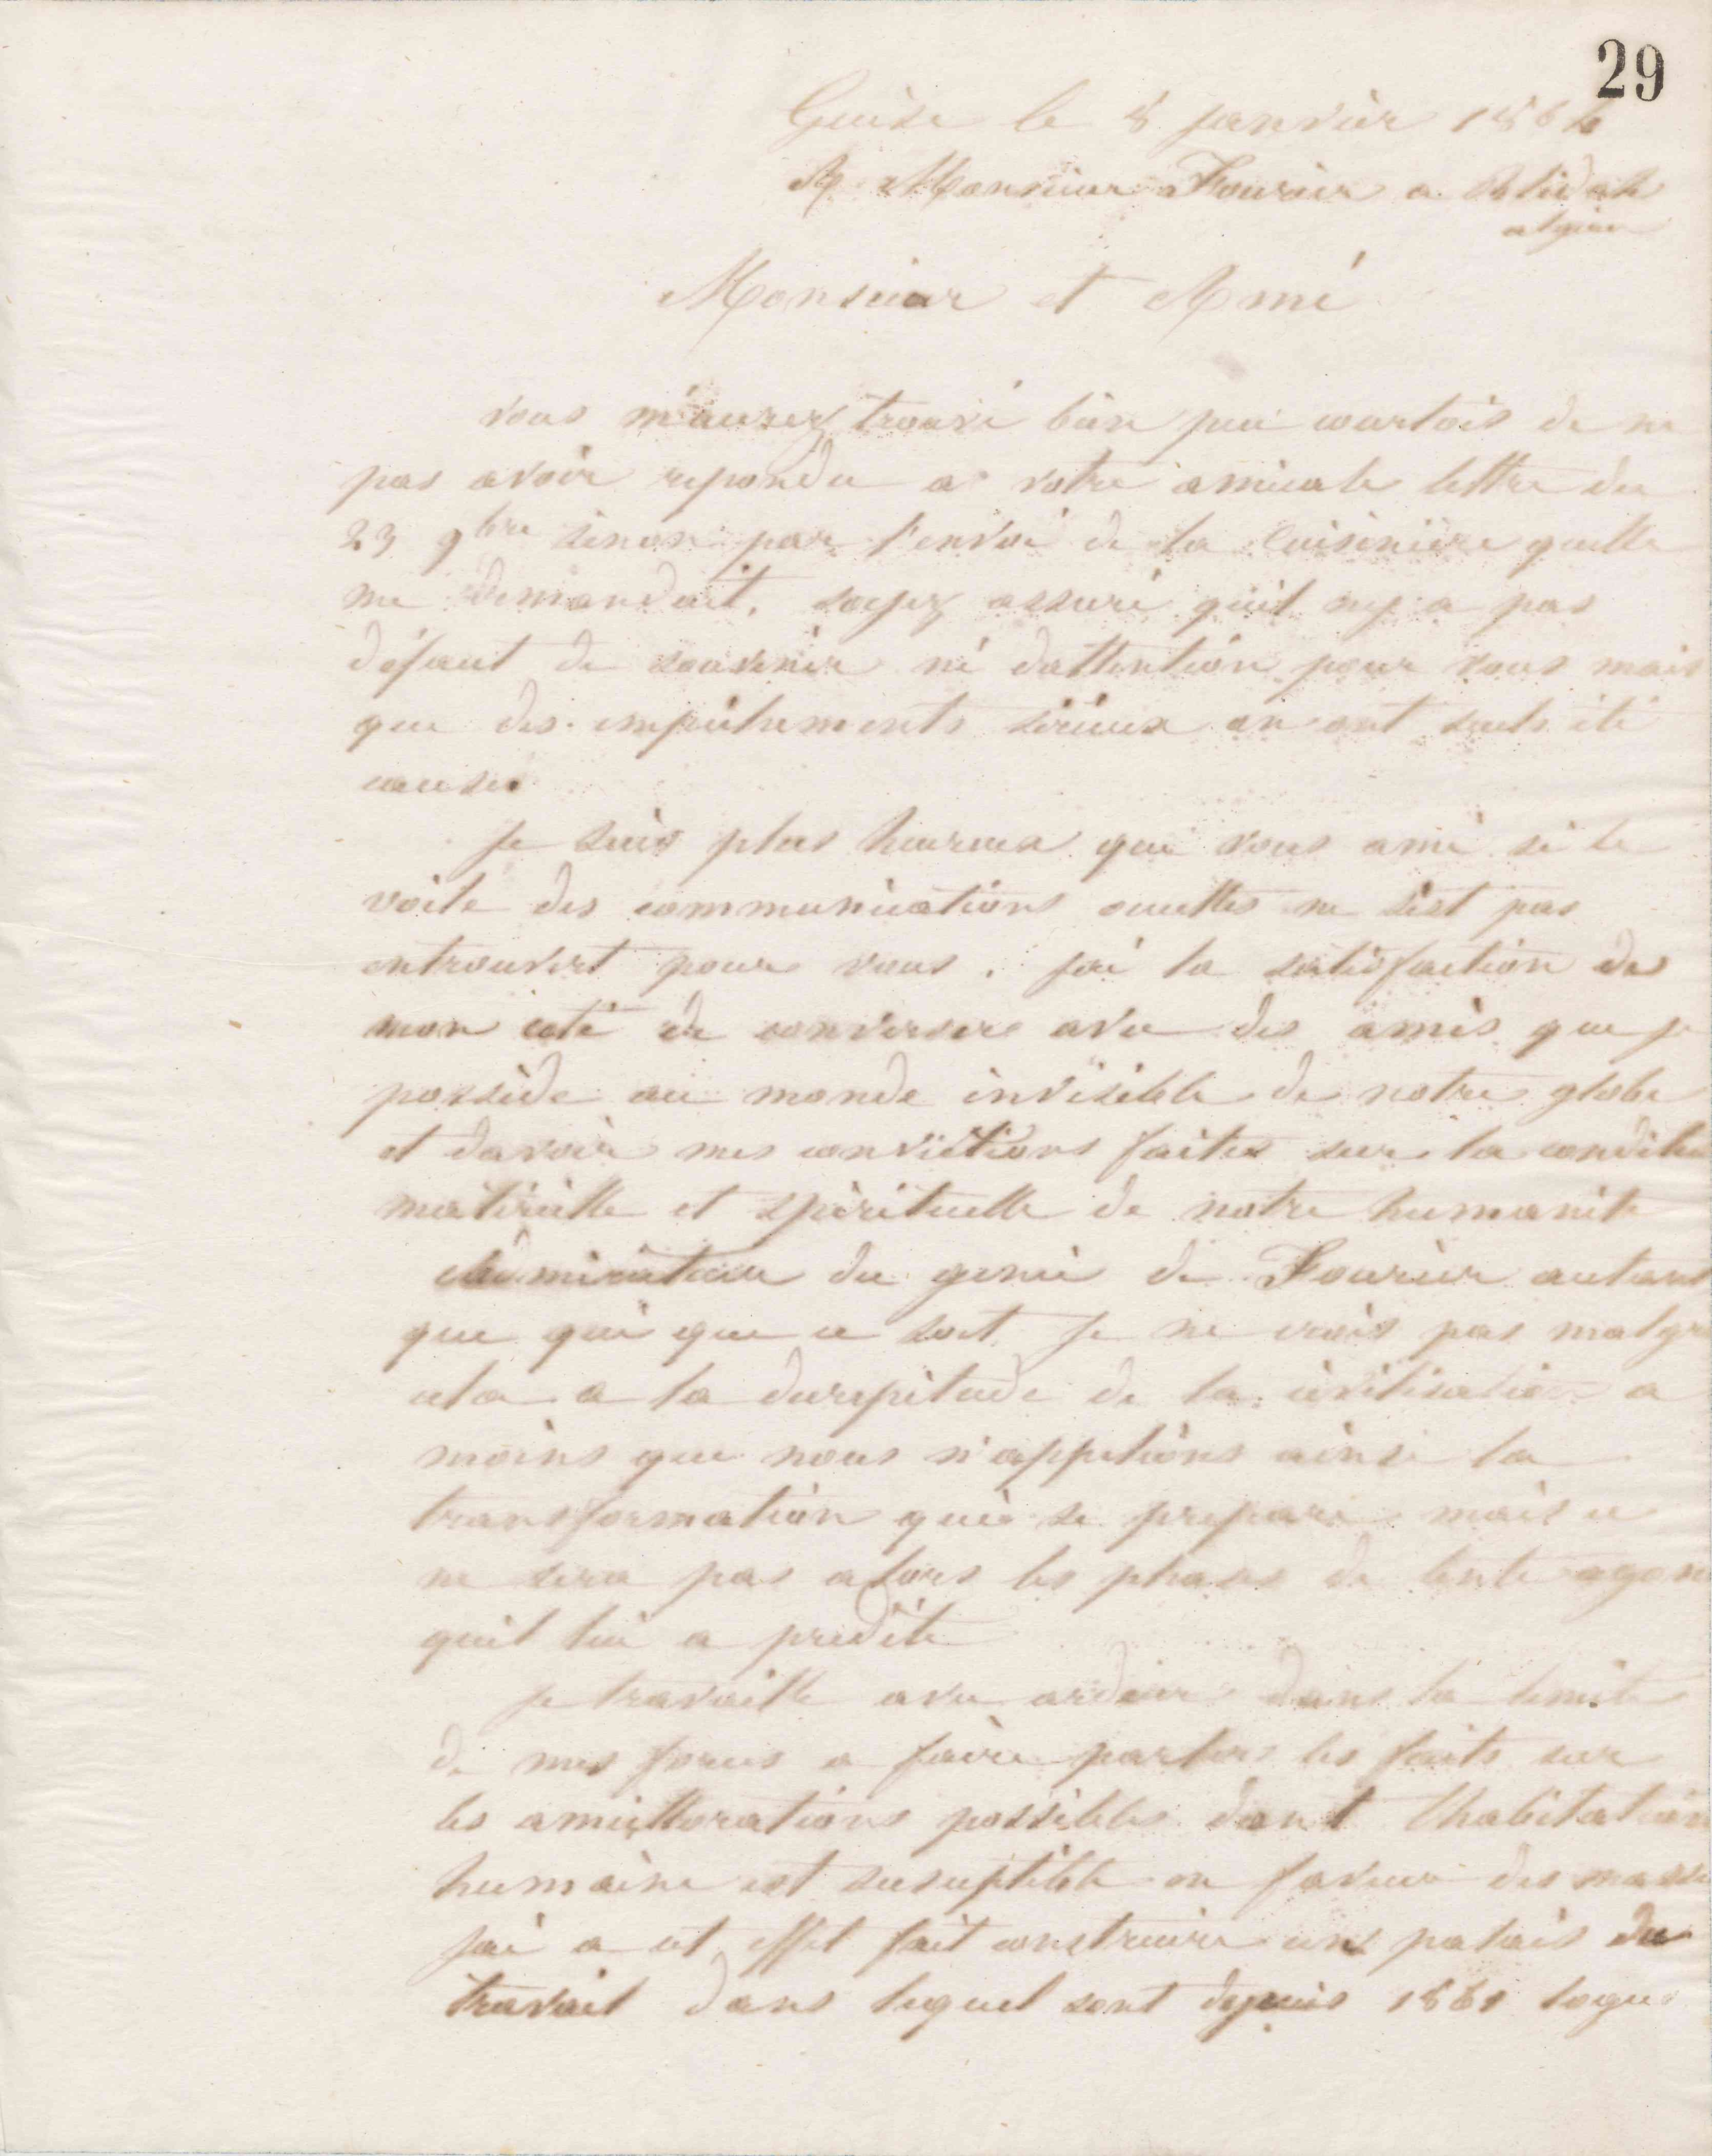 29
Guise le 8 janvier 186
A Monsieur Fourier a Blidah
algérie
Monsieur et Ami
vous m'aurez trouvé bien peu courtois de ne
pas avoir repondu a votre amicale lettre du
23 9bre sinon par l'envoi de la cuisinière quelle
me demandait. soyez assuré quil ny a pas
défaut de souvenir ni dattention pour vous mais
que des empêchements sérieux en ont seuls été
cause.
Je suis plus heureux que vous ami si le
voile des communications occultes ne sest pas
entrouvert pour vous. jai la satisfaction de
mon coté de converser avec des amis que je
possède au monde invisible de notre globe
et davoir mes convictions faites sur la condition
matérielle et spirituelle de notre humanité
admirateur du genie de Fourier autant
que qui que ce soit je ne crois pas malgré
cela a la decrepitude de la civilisation a
moins que nous n'appelions ainsi la
transformation qui se prepare mais ce
ne sera pas alors les phases de lente agonie
quil lui a predite
je travaille avec ardeur dans la limite
de mes forces a faire parler les faits sur
les améliorations possibles dont lhabitation
humaine est suceptible en faveur des masses
jai a cet effet fait construire un palais du
travail dans lequel sont depuis 1861 logu